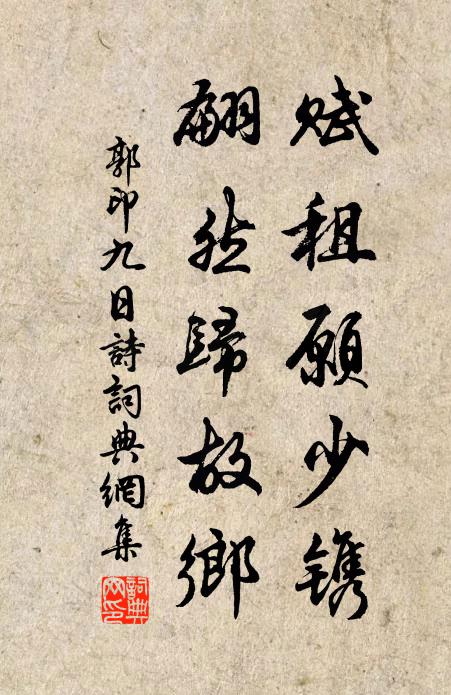 赋租願少镌
翩然歸故鄉
郭印九日詩詞典網集
詞典網印